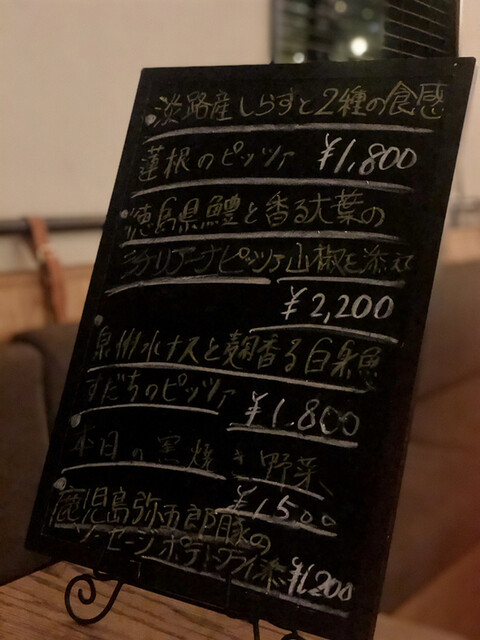 淡路産しらすと2種の食感
蓮根のピッツァ ¥1,800
徳島県鱧と香る大葉の
シチリアーナピッツァ山椒を添えて
¥2,200
泉州水ナスと麹香る白身魚
すだちのピッツァ ¥1,800
本日の窯焼き野菜
¥1,500
鹿児島弥五郎豚の
ソーセージポテトフライ添 ¥1,200